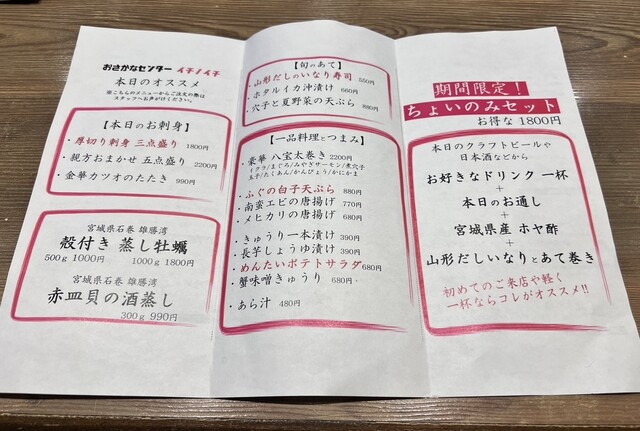 おさかなセンター イチノイチ
本日のオススメ
※こちらのメニューからご注文の際は
スタッフへお声がけください。
【本日のお刺身】
・厚切り刺身 三点盛り 1800円
・親方おまかせ 五点盛り 2200円
・金華カツオのたたき 990円
宮城県石巻 雄勝湾
殻付き 蒸し牡蠣
500g 1000円 1000g 1800円
宮城県石巻 雄勝湾
赤皿貝の酒蒸し
300g 990円
【旬のあて】
・山形だしのいなり寿司 550円
・ホタルイカ沖漬け 660円
・穴子と夏野菜の天ぷら 880円
【一品料理とつまみ】
・豪華 八宝太巻き 2200円
イクラ/まぐろ/みやぎサーモン/煮穴子
玉子/たくあん/かんぴょう/かにかま
・ふぐの白子天ぷら 880円
・南蛮エビの唐揚げ 770円
・メヒカリの唐揚げ 680円
・きゅうり一本漬け 390円
・長芋しょうゆ漬け 390円
・めんたいポテトサラダ 680円
・蟹味噌きゅうり 680円
・あら汁 480円
期間限定!
ちょいのみセット
お得な 1800円
本日のクラフトビールや
日本酒などから
お好きなドリンク 一杯
+
本日のお通し
+
宮城県産 ホヤ酢
+
山形だしいなりとあて巻き
初めてのご来店や軽く
一杯ならコレがオススメ!!